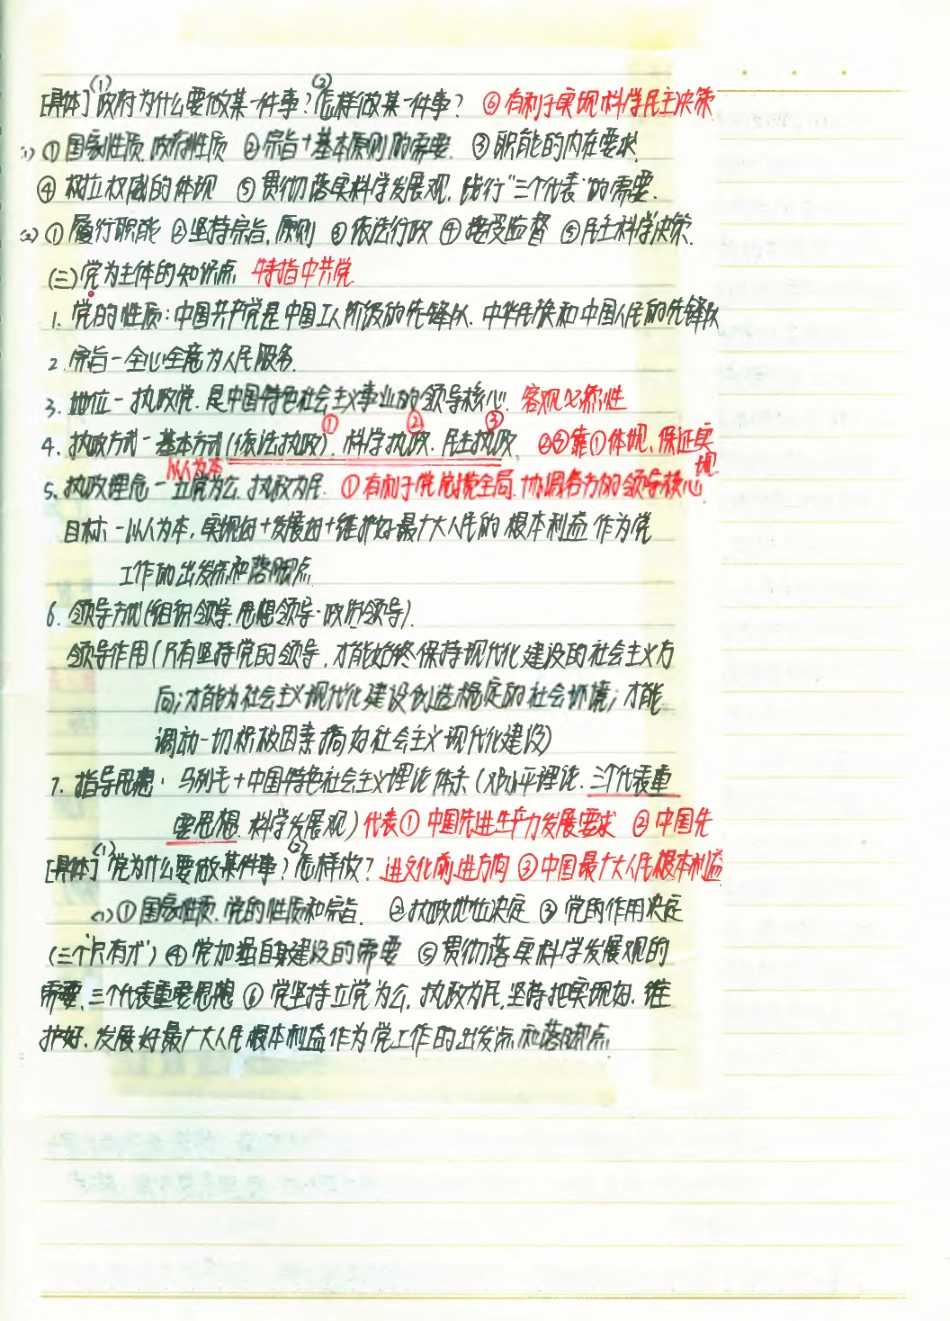 [具体] (1)政府为什么要做某一件事？(2)怎样做某一件事？ ⑥有利于实现科学民主决策
(1) ①国家性质 政府性质 ②宗旨+基本原则的需要. ③职能的内在要求
④树立权威的体现 ⑤贯彻落实科学发展观，践行“三个代表”的需要.
(2) ①履行职能 ②坚持宗旨，原则 ③依法行政 ④接受监督 ⑤民主科学决策.
(三)党为主体的知识点 特指中共党
1. 党的性质：中国共产党是中国工人阶级的先锋队. 中华民族和中国人民的先锋队
2. 宗旨－全心全意为人民服务.
3. 地位－执政党. 是中国特色社会主义事业的领导核心. 客观必然性
① ② ③
4. 执政方式－基本方式(依法执政). 科学执政. 民主执政. ②③靠①体现、保证实现
以人为本
5. 执政理念－立党为公. 执政为民. ①有利于党总揽全局. 协调各方的领导核心
目标－以人为本，实现好+发展好+维护好最广大人民的根本利益作为党
工作的出发点和落脚点
6. 领导方式(组织领导. 思想领导. 政治领导).
领导作用(只有坚持党的领导，才能始终保持现代化建设的社会主义方
向；才能为社会主义现代化建设创造稳定的社会环境；才能
调动一切积极因素搞好社会主义现代化建设)
7. 指导思想：马列毛+中国特色社会主义理论体系(邓小平理论. 三个代表重
要思想. 科学发展观) 代表①中国先进生产力发展要求 ②中国先
[具体] (1)党为什么要做某件事？(2)怎样做？ 进文化前进方向 ③中国最广大人民根本利益
(1) ①国家性质. 党的性质和宗旨. ②执政地位决定 ③党的作用决定
(三个“只有才”) ④党加强自身建设的需要 ⑤贯彻落实科学发展观的
需要、三个代表重要思想 ⑥党坚持立党为公，执政为民，坚持把实现好. 维
护好. 发展好最广大人民根本利益作为党工作的出发点和落脚点